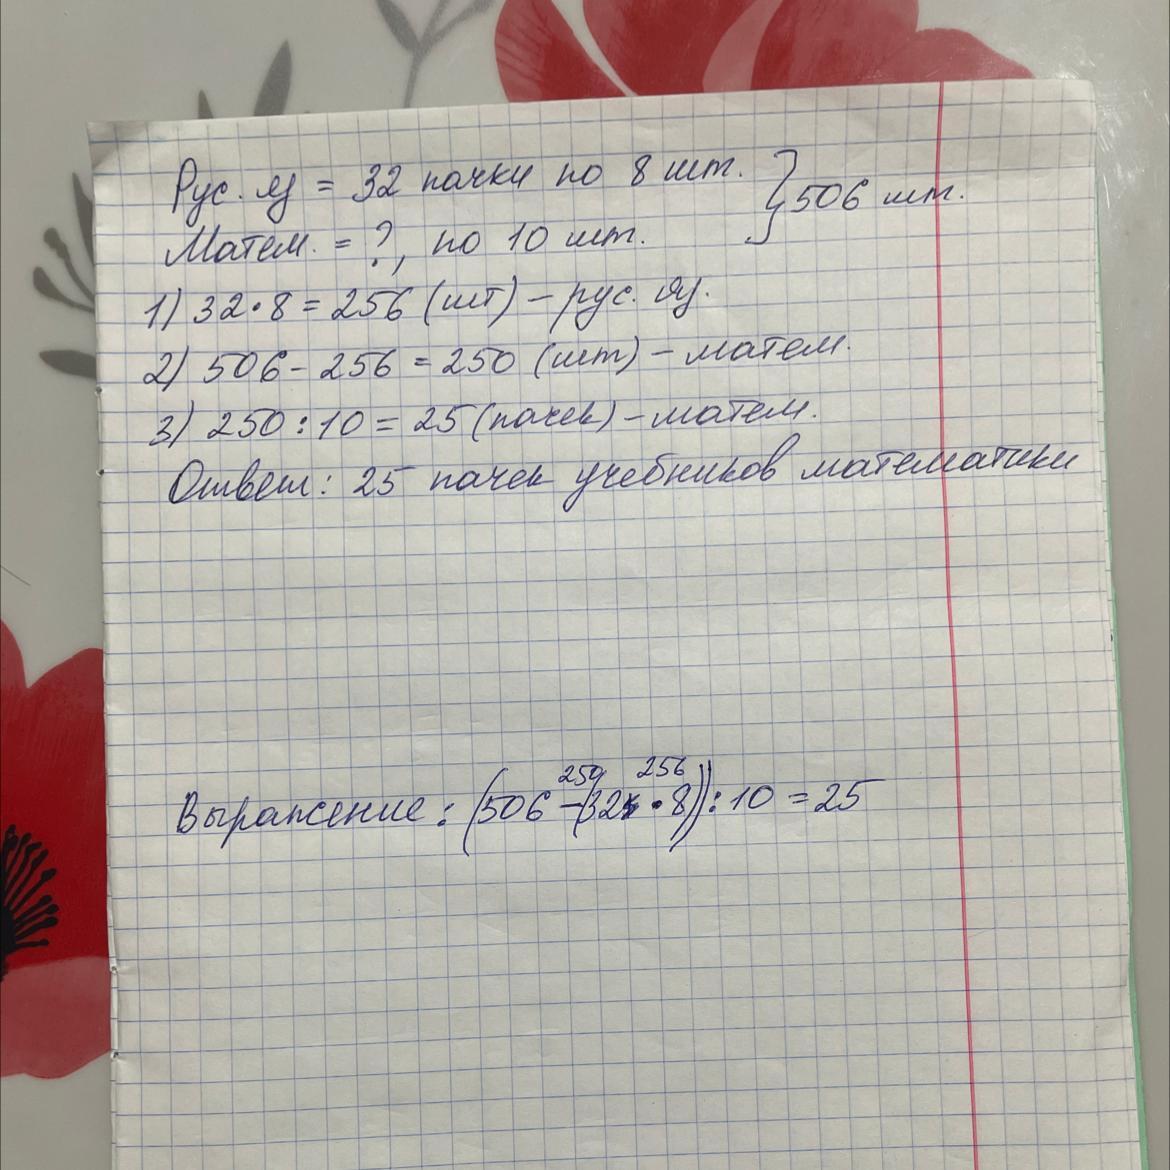 Рус. яз = 32 пачки по 8 шт. } 506 шт.
Матем. = ?, по 10 шт.
1) 32 • 8 = 256 (шт) – рус. яз.
2) 506 - 256 = 250 (шт) – матем.
3) 250 : 10 = 25 (пачек) – матем.
Ответ: 25 пачек учебников математики
250 256
Выражение: (506 – (32 • 8)) : 10 = 25